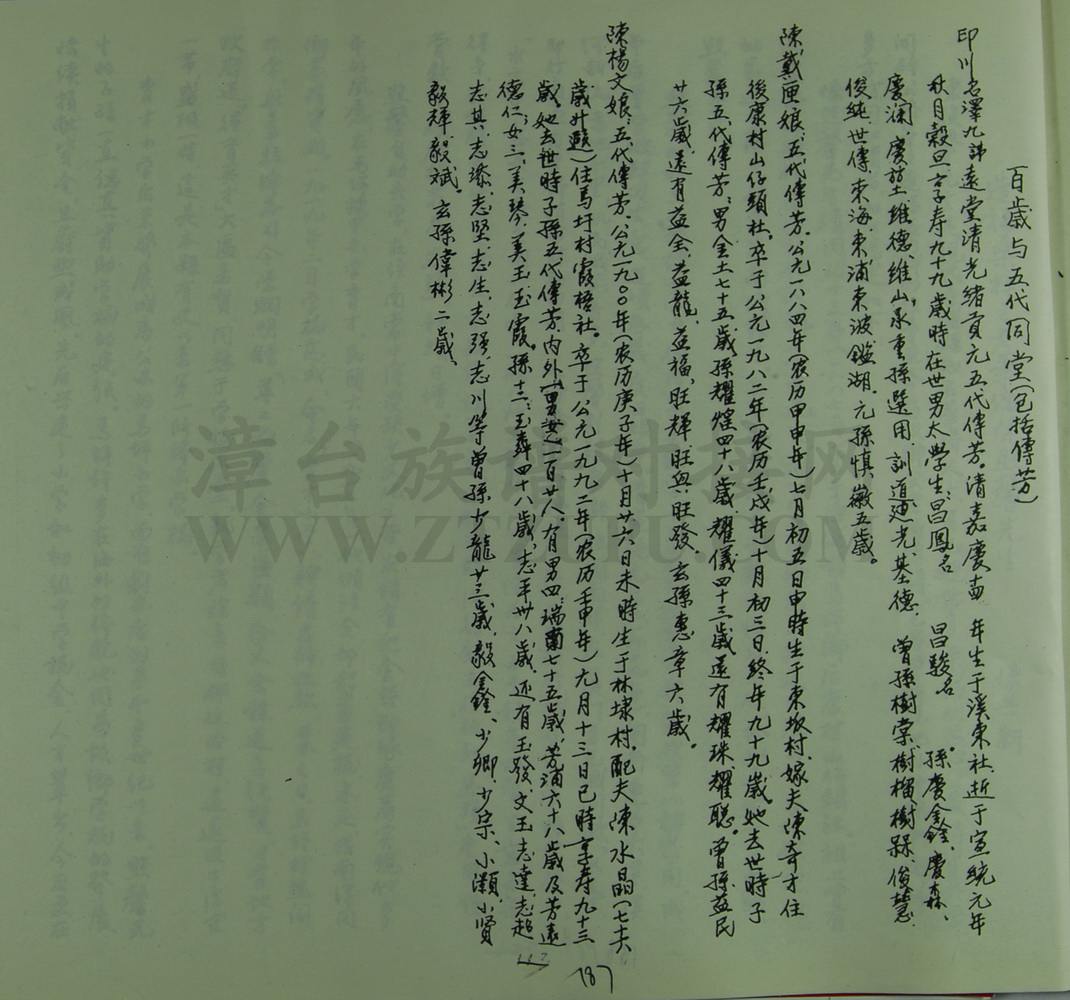 百歲与五代同堂(包括傳芳)
印川名澤九諱遠堂清光緒貢元五代傳芳。清嘉慶 年生于溪東社,逝于宣統元年
秋月穀旦享寿九十九歲時在世男太學生:昌鳳名 昌駿名 。孫慶鑫、慶森、
慶瀾、慶 、維德、維山,承重孫選用,訓道廸光、基德、曾孫樹棠、樹榴、樹槑、俊慧、
俊純、世傳、東海、東浦、東波、鑑湖、元孫慎徽五歲。
陳戴匣娘,五代傳芳。公元一八八四年(农历甲申年)七月初五日申時生于東坂村,嫁夫陳奇才住
後康村山仔頭社。卒于公元一九八二年(农历壬戌年)十月初三日,終年九十九歲。她去世時子
孫五代傳芳:男金土七十五歲,孫耀煌四十八歲,耀儀四十三歲,還有耀珠、耀聪。曾孫益民
廿六歲,還有益全、益龍、益福、旺輝、旺興、旺發、玄孫惠章六歲。
陳楊文娘:五代傳芳,公元一九〇〇年(农历庚子年)十月廿六日未時生于林埭村。配夫陳水晶(七夫
歲卅 )住馬圩村霞梧社。卒于公元一九九二年(农历壬申年)九月十三日巳時享寿九十三
歲。她去世時子孫五代傳芳内外(男女)一百廿人。有男四:瑞蘭七十五歲,芳浦六十八歲及芳遠
德仁;女三:美琴、美玉、玉霞。孫十三:玉舜四十八歲,志平卅八歲,还有玉發、文玉、志達、志超
志其、志添、志堅、志生、志强、志川等,曾孫少龍廿三歲,毅鑫、少卿、少宗、小灝、小賢
毅輝、毅斌。玄孫偉彬二歲。
187
漳台族谱对接网
WWW.ZTZUPU.COM